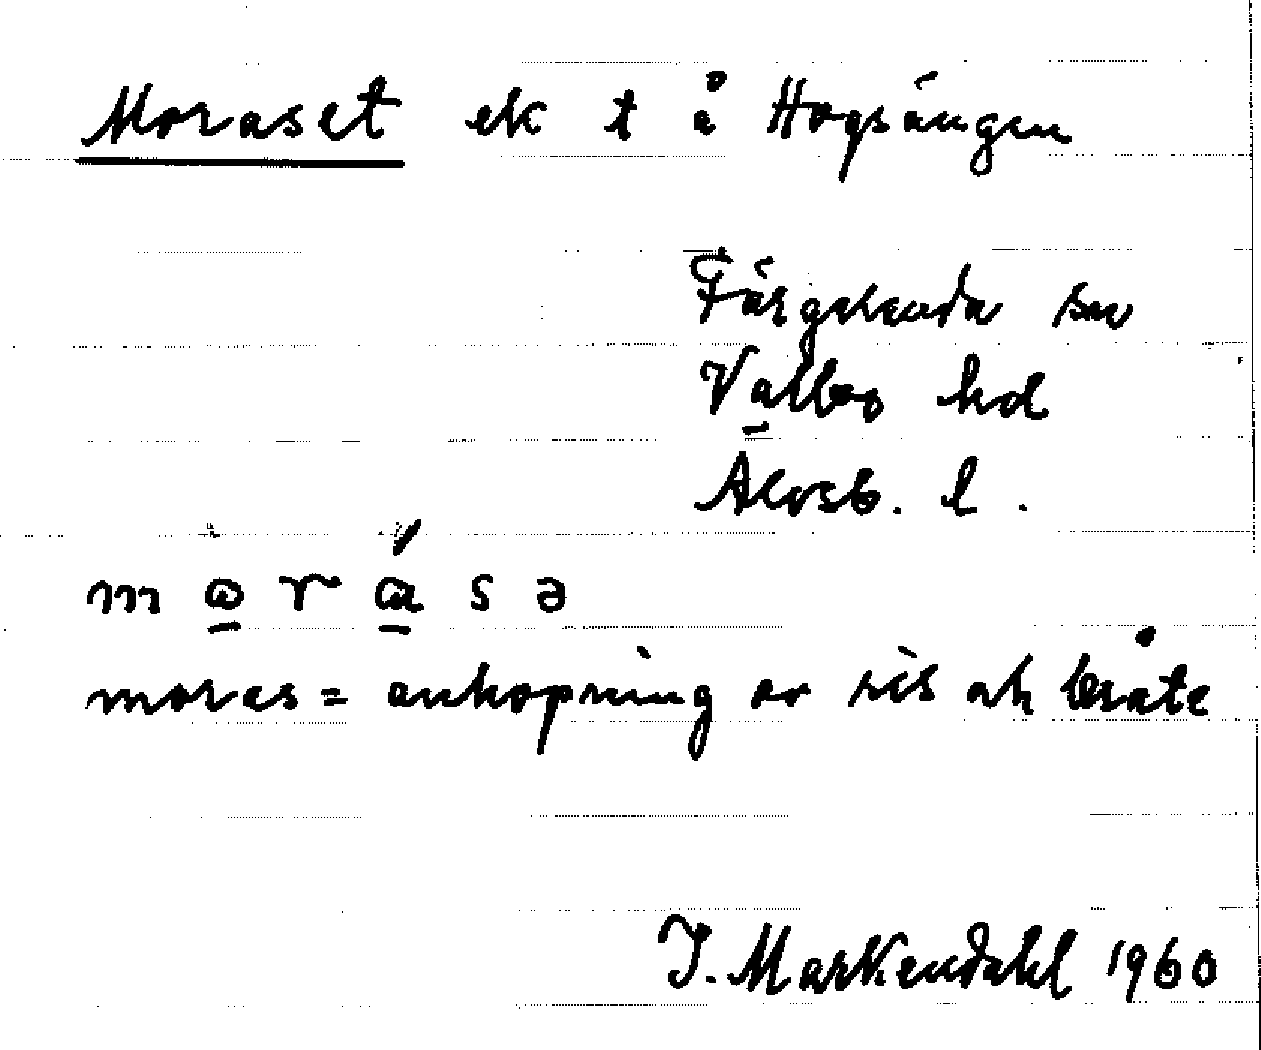 Moraset ek t å Högsängen
Färgelanda sn
Valbo hd
Älvsb. l.
mɷrási ə
moras = anhopning av ris ock bråte
J. Markendahl 1960